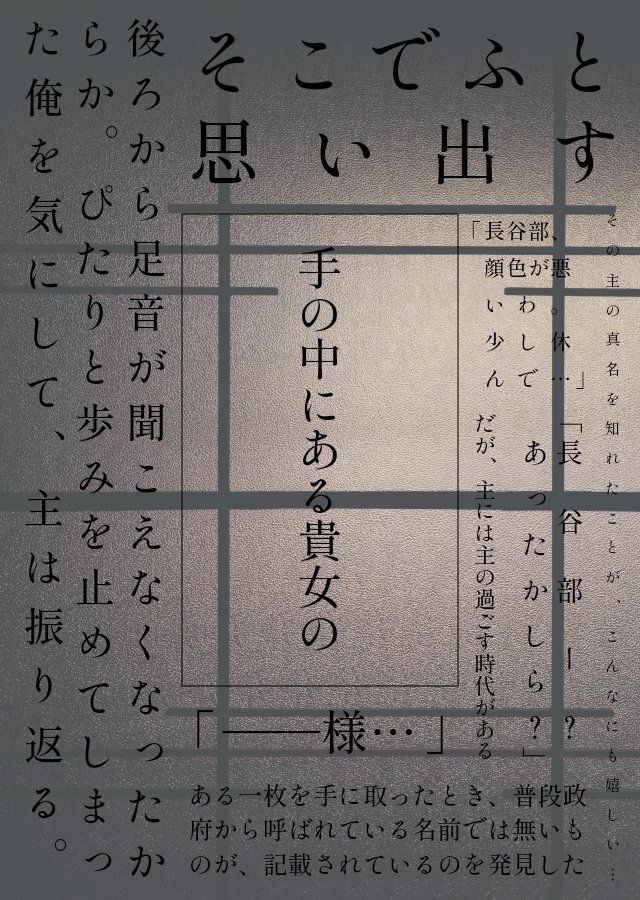 そこでふと
思い出す
後ろから足音が聞こえなくなったか
らか。ぴたりと歩みを止めてしまっ
た俺を気にして、主は振り返る。
その主の真名を知れたことが、こんなにも嬉しい…
「長谷部、
顔色が悪
い わ 。
少 し 休
ん で …」
「長谷部―?
あったかしら?」
だが、主には主の過ごす時代がある
手の中にある貴女の
「――様…」
ある一枚を手に取ったとき、普段政
府から呼ばれている名前では無いも
のが、記載されているのを発見した